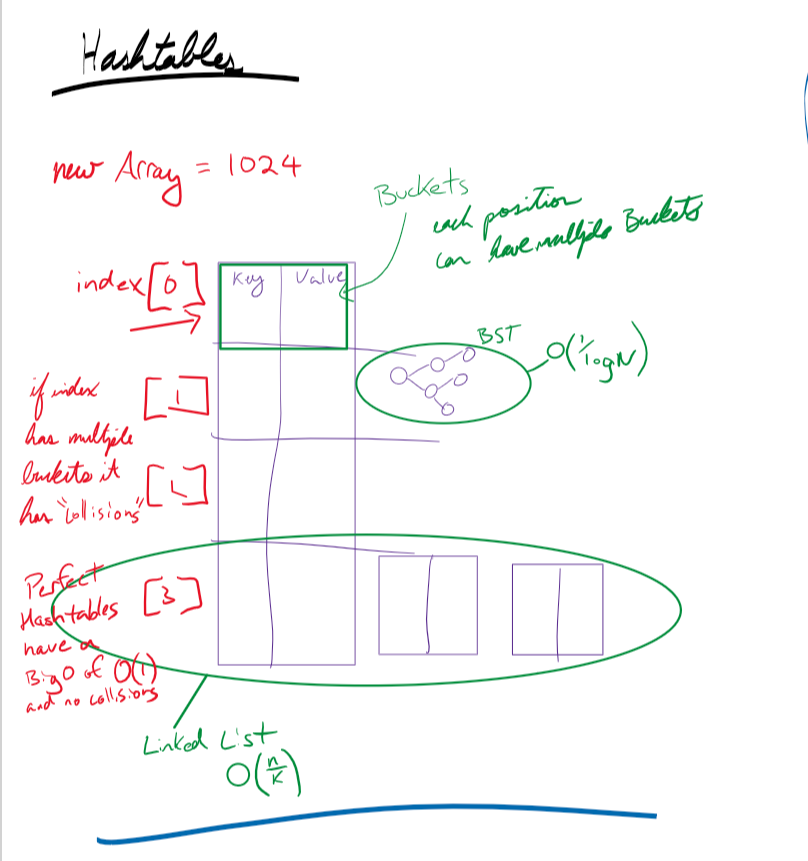 Hashtables
new Array = 1024
Buckets
each position
can have multiple Buckets
index [0]
Key Value
BST
O(1/logN)
if index
has multiple
buckets it
has "collisions"
[1]
[3]
Perfect
Hashtables
have a
Big O of O(1)
and no collisions
Linked List
O(n/k)